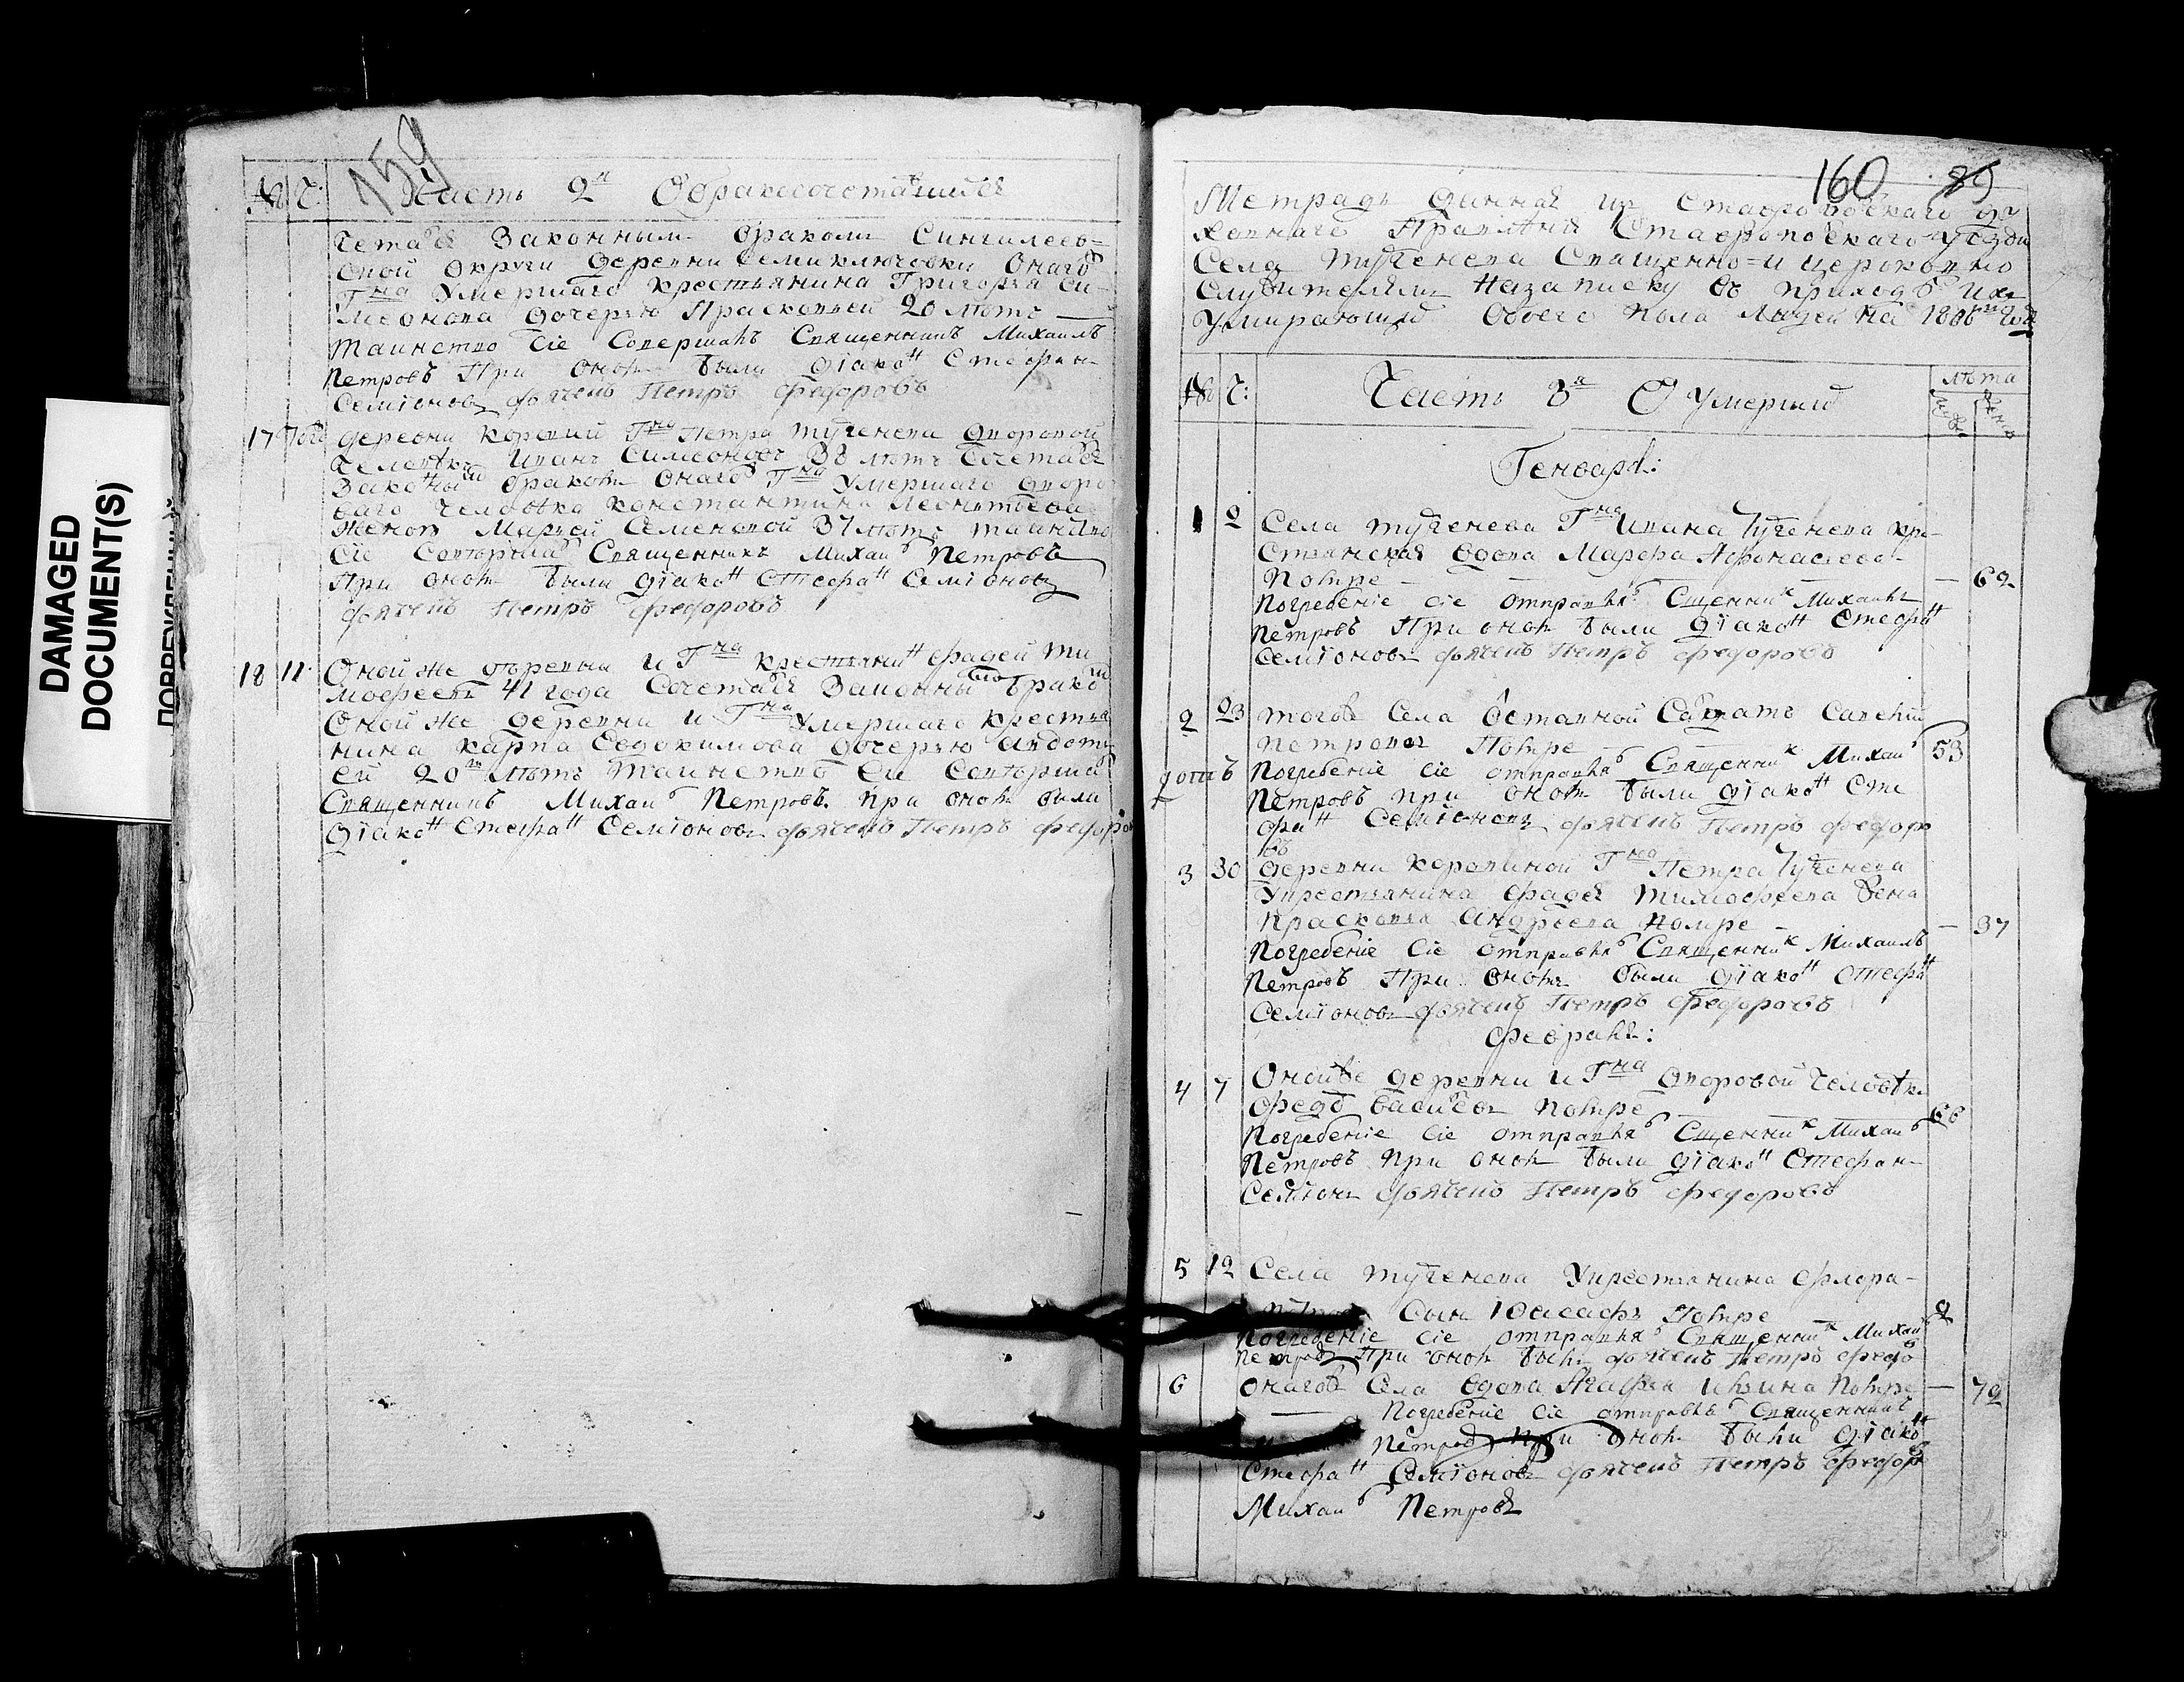 DAMAGED
DOCUMENT(S)
159
№ Ч: Часть 2я О бракосочетавшихся
четался Законнымъ бракомъ Сингилеев=
ской округи деревни Семиключовки онаго
Гна Умершаго крестьянина Григорья Си-
меонова дочерью Прасковьей 20 летъ
Таинство Сіе Совершалъ Священникъ Михаилъ
Петровъ При ономъ были діаконъ Стефанъ
Семіоновъ дьячекъ Петръ Федоровъ
17 деревни Гна Петра Тургенева дворовой
человекъ Иванъ Симеоновъ 38 летъ сочетался
Законнымъ бракомъ онаго Гна Умершаго дворо
ваго человека Константина Леонтьева
женою Марьей Семеновой 37 летъ таинство
сіе Сотворилъ Священникъ Михаилъ Петровъ
При ономъ были діаконъ Стефанъ Семіоновъ
дьячекъ Петръ Федоровъ
18 11 Оной же деревни и Гна крестьянинъ Фадей Ти
мофеевъ 41 года Сочетался Законнымъ бракомъ
Оной же деревни и Гна Умершаго крестья
нина Карпа Евдокимова дочерью Авдоть
ей 20 летъ таинство Сіе Сотворилъ
Священникъ Михаилъ Петровъ при ономъ были
діаконъ Стефанъ Семіоновъ дьячекъ Петръ Федоровъ
160 89
Метрадь данная изъ Ставропольскаго ду
ховнаго Правленія Ставропольскаго уезда
Села Тургенева Священно=и церковно
Служителямъ На записку въ приходе ихъ
Умирающихъ Обоего Пола Людей На 1806 годъ
№ Ч: Часть 3я О Умершихъ лета
Генварь:
1 2 Села Тургенева Гна Ивана Тургенева кре-
стьянская вдова Марфа Афонасьева
Помре — 62
Погребеніе сіе отправлялъ Сщенникъ Михаилъ
Петровъ При ономъ были діаконъ Стефанъ
Семіоновъ дьячекъ Петръ Федоровъ
2 23 тогоже Села Отставной Солдатъ Савелій
Петровъ Помре 53
Погребеніе сіе отправлялъ Священникъ Михаилъ
Петровъ при ономъ были діаконъ Сте
фанъ Семіоновъ дьячекъ Петръ Федоро
въ
3 30 деревни Гна Петра Тургенева
Укрестьянина Фадея Тимофеева жена
Прасковья Андреева Помре — 37
Погребеніе Сіе отправлялъ Священникъ Михаилъ
Петровъ При ономъ были діаконъ Стефанъ
Семіоновъ дьячекъ Петръ Федоровъ
Февраль:
4 7 Онойже деревни и Гна дворовой человекъ
Федоръ Васильевъ Помре 66
Погребеніе Сіе отправлялъ Сщенникъ Михаилъ
Петровъ при ономъ были діаконъ Стефанъ
Семіонъ дьячекъ Петръ Федоровъ
5 12 Села Тургенева Укрестьянина Флора
Сынъ Іоасафъ Помре 2
Погребеніе сіе отправлялъ Священникъ Михаилъ
Петровъ При ономъ былъ дьячекъ Петръ Федо
6 онагоже Села вдова Агафья Ильина Помре — 72
Погребеніе Сіе отправлялъ Священникъ
Петровъ при ономъ были діаконъ
Стефанъ Семіоновъ дьячекъ Петръ Федоро
Михаилъ Петровъ